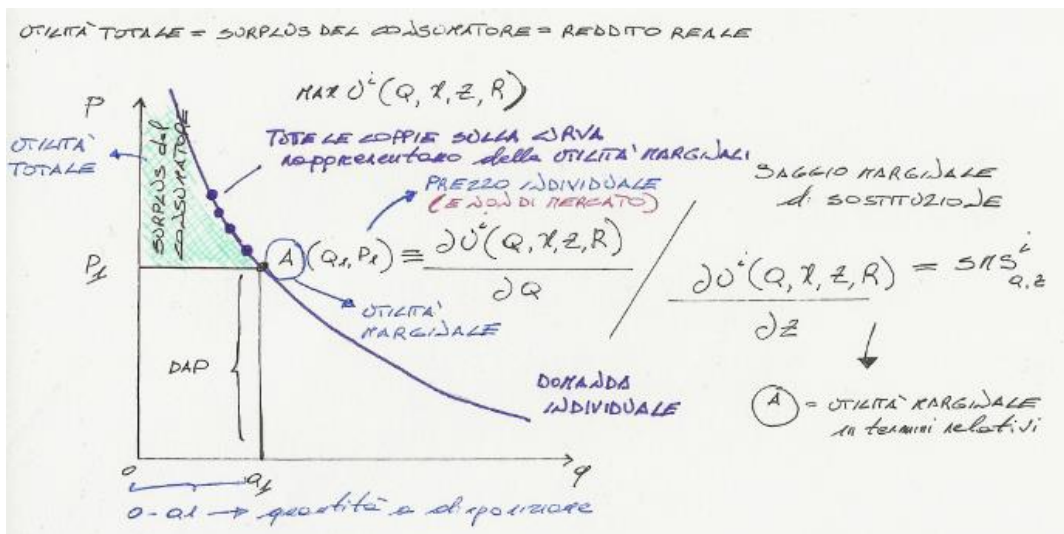 UTILITÀ TOTALE = SURPLUS DEL CONSUMATORE = REDDITO REALE
P
MAX U^i (Q, X, Z, R)
UTILITÀ
TOTALE
SURPLUS del
CONSUMATORE
TUTTE LE COPPIE SULLA CURVA
rappresentano delle UTILITÀ MARGINALI
PREZZO INDIVIDUALE
(E NON DI MERCATO)
SAGGIO MARGINALE
di SOSTITUZIONE
P1
A (Q1, P1) ≡ ∂U^i (Q, X, Z, R)
∂Q
/
∂U^i (Q, X, Z, R) = SMS^i Q,Z
∂Z
UTILITÀ
MARGINALE
DAP
DOMANDA
INDIVIDUALE
A = UTILITÀ MARGINALE
in termini relativi
O
Q1
q
O-Q1 → quantità a disposizione